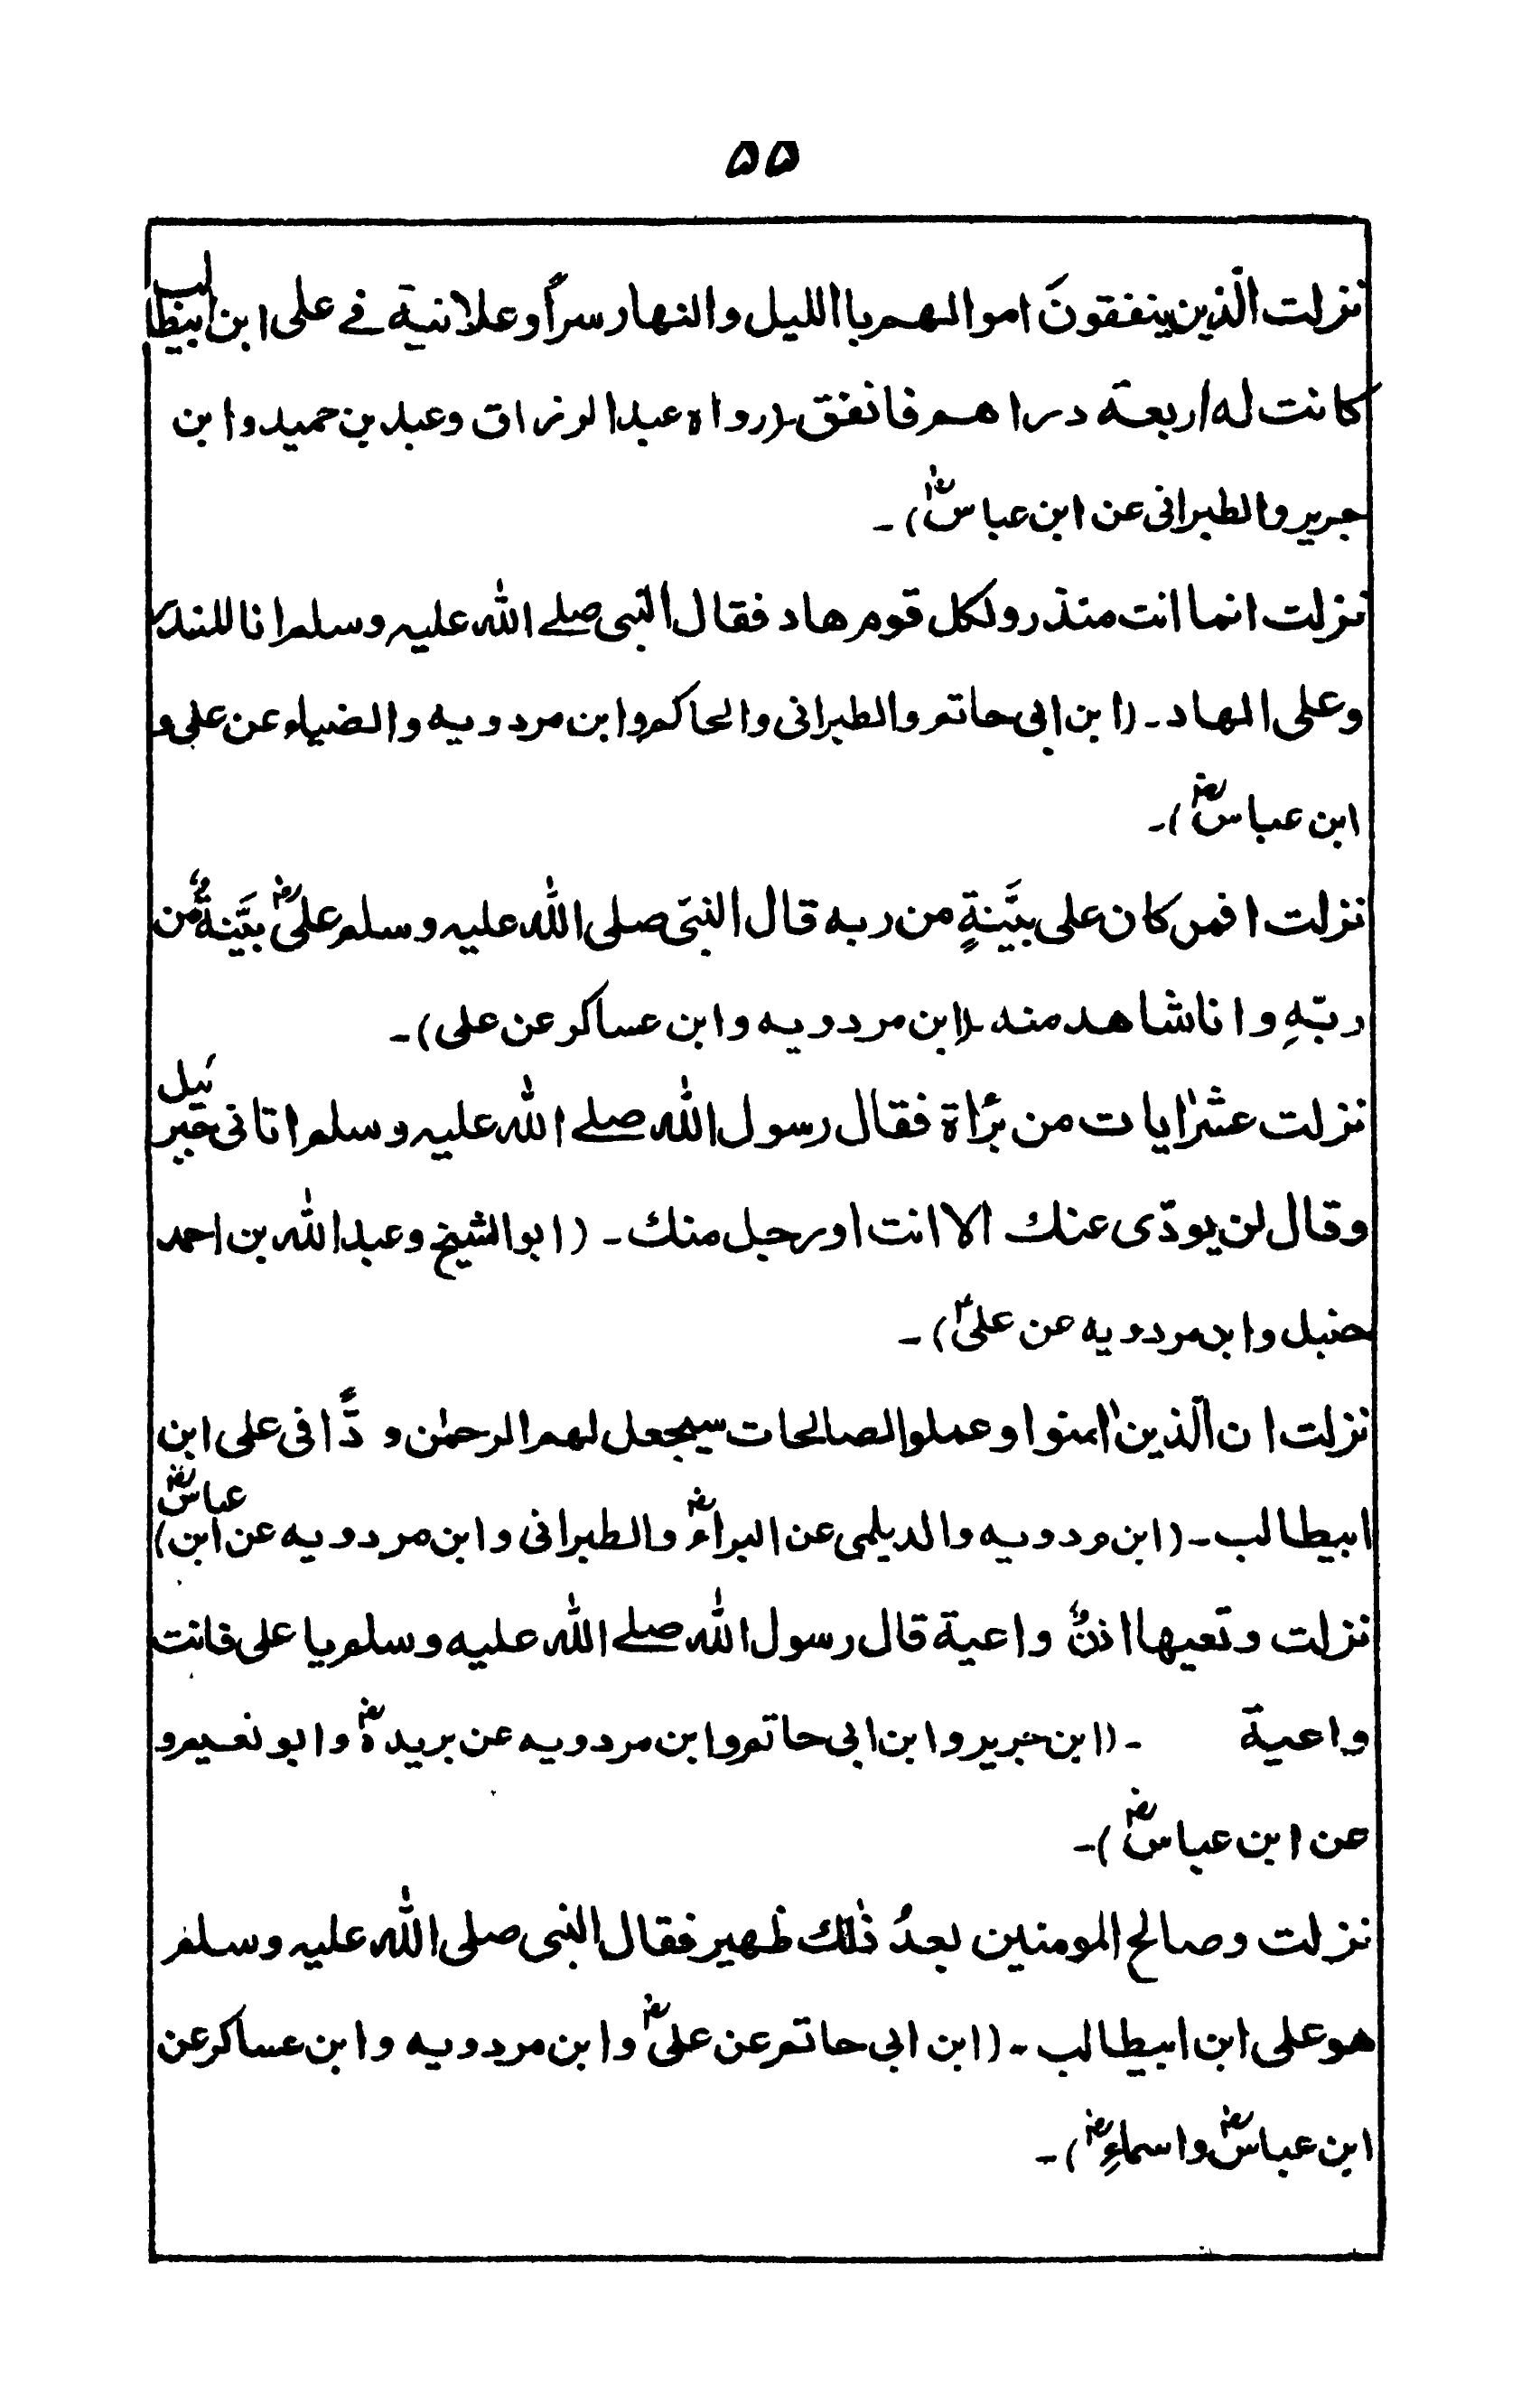 ۵۵
نزلت الّذين ينفقونَ اموالهم باالليل والنهار سراً وعلانية فے علی ابن ابیطالب
كانت له اربعة دراهم فانفق ـ (رواه عبدالرزاق وعبد بن حميد وابن
جرير والطبرانی عن ابن عباسؓ) ـ
نزلت انما انت منذر ولكل قوم هاد فقال النبی صلے الله علیہ وسلم انا المنذر
وعلی الهاد ـ (ابن ابی حاتم والطبرانی والحاكم وابن مردويه والضياء عن علی و
ابن عباسؓ) ـ
نزلت افمن كان علی بيّنةٍ من ربه قال النبیّ صلی الله علیہ وسلم علیؓ بيّنةٌ من
ربّهِ وانا شاهد منه ـ (ابن مردويه وابن عساكر عن علی) ـ
نزلت عشر اٰيات من برٔاة فقال رسول الله صلے الله علیہ وسلم اتانی جبرئيل
وقال لن يودّی عنك الا انت او رجل منك ـ (ابو الشيخ وعبد الله بن احمد
حنبل وابن مردويه عن علیؓ) ـ
نزلت ان الّذين اٰمنوا وعملوا الصالحات سيجعل لهم الرحمٰن ودًّا فی علی ابن
ابیطالب ـ (ابن مردويه والديلمی عن البراءؓ والطبرانی وابن مردويه عن ابن عباسؓ)
نزلت وتعيها اذنٌ واعية قال رسول الله صلے الله عليه وسلم يا علی فانت
واعية ـ (ابن جرير وابن ابی حاتم وابن مردويه عن بريدةؓ وابو نعيم و
عن ابن عباسؓ) ـ
نزلت وصالح المومنين بعدُ ذٰلك ظهير فقال النبی صلی الله علیہ وسلم
هو علی ابن ابیطالب ـ (ابن ابی حاتم عن علیؓ وابن مردويه وابن عساكر عن
ابن عباسؓ واسماءِؓ) ـ